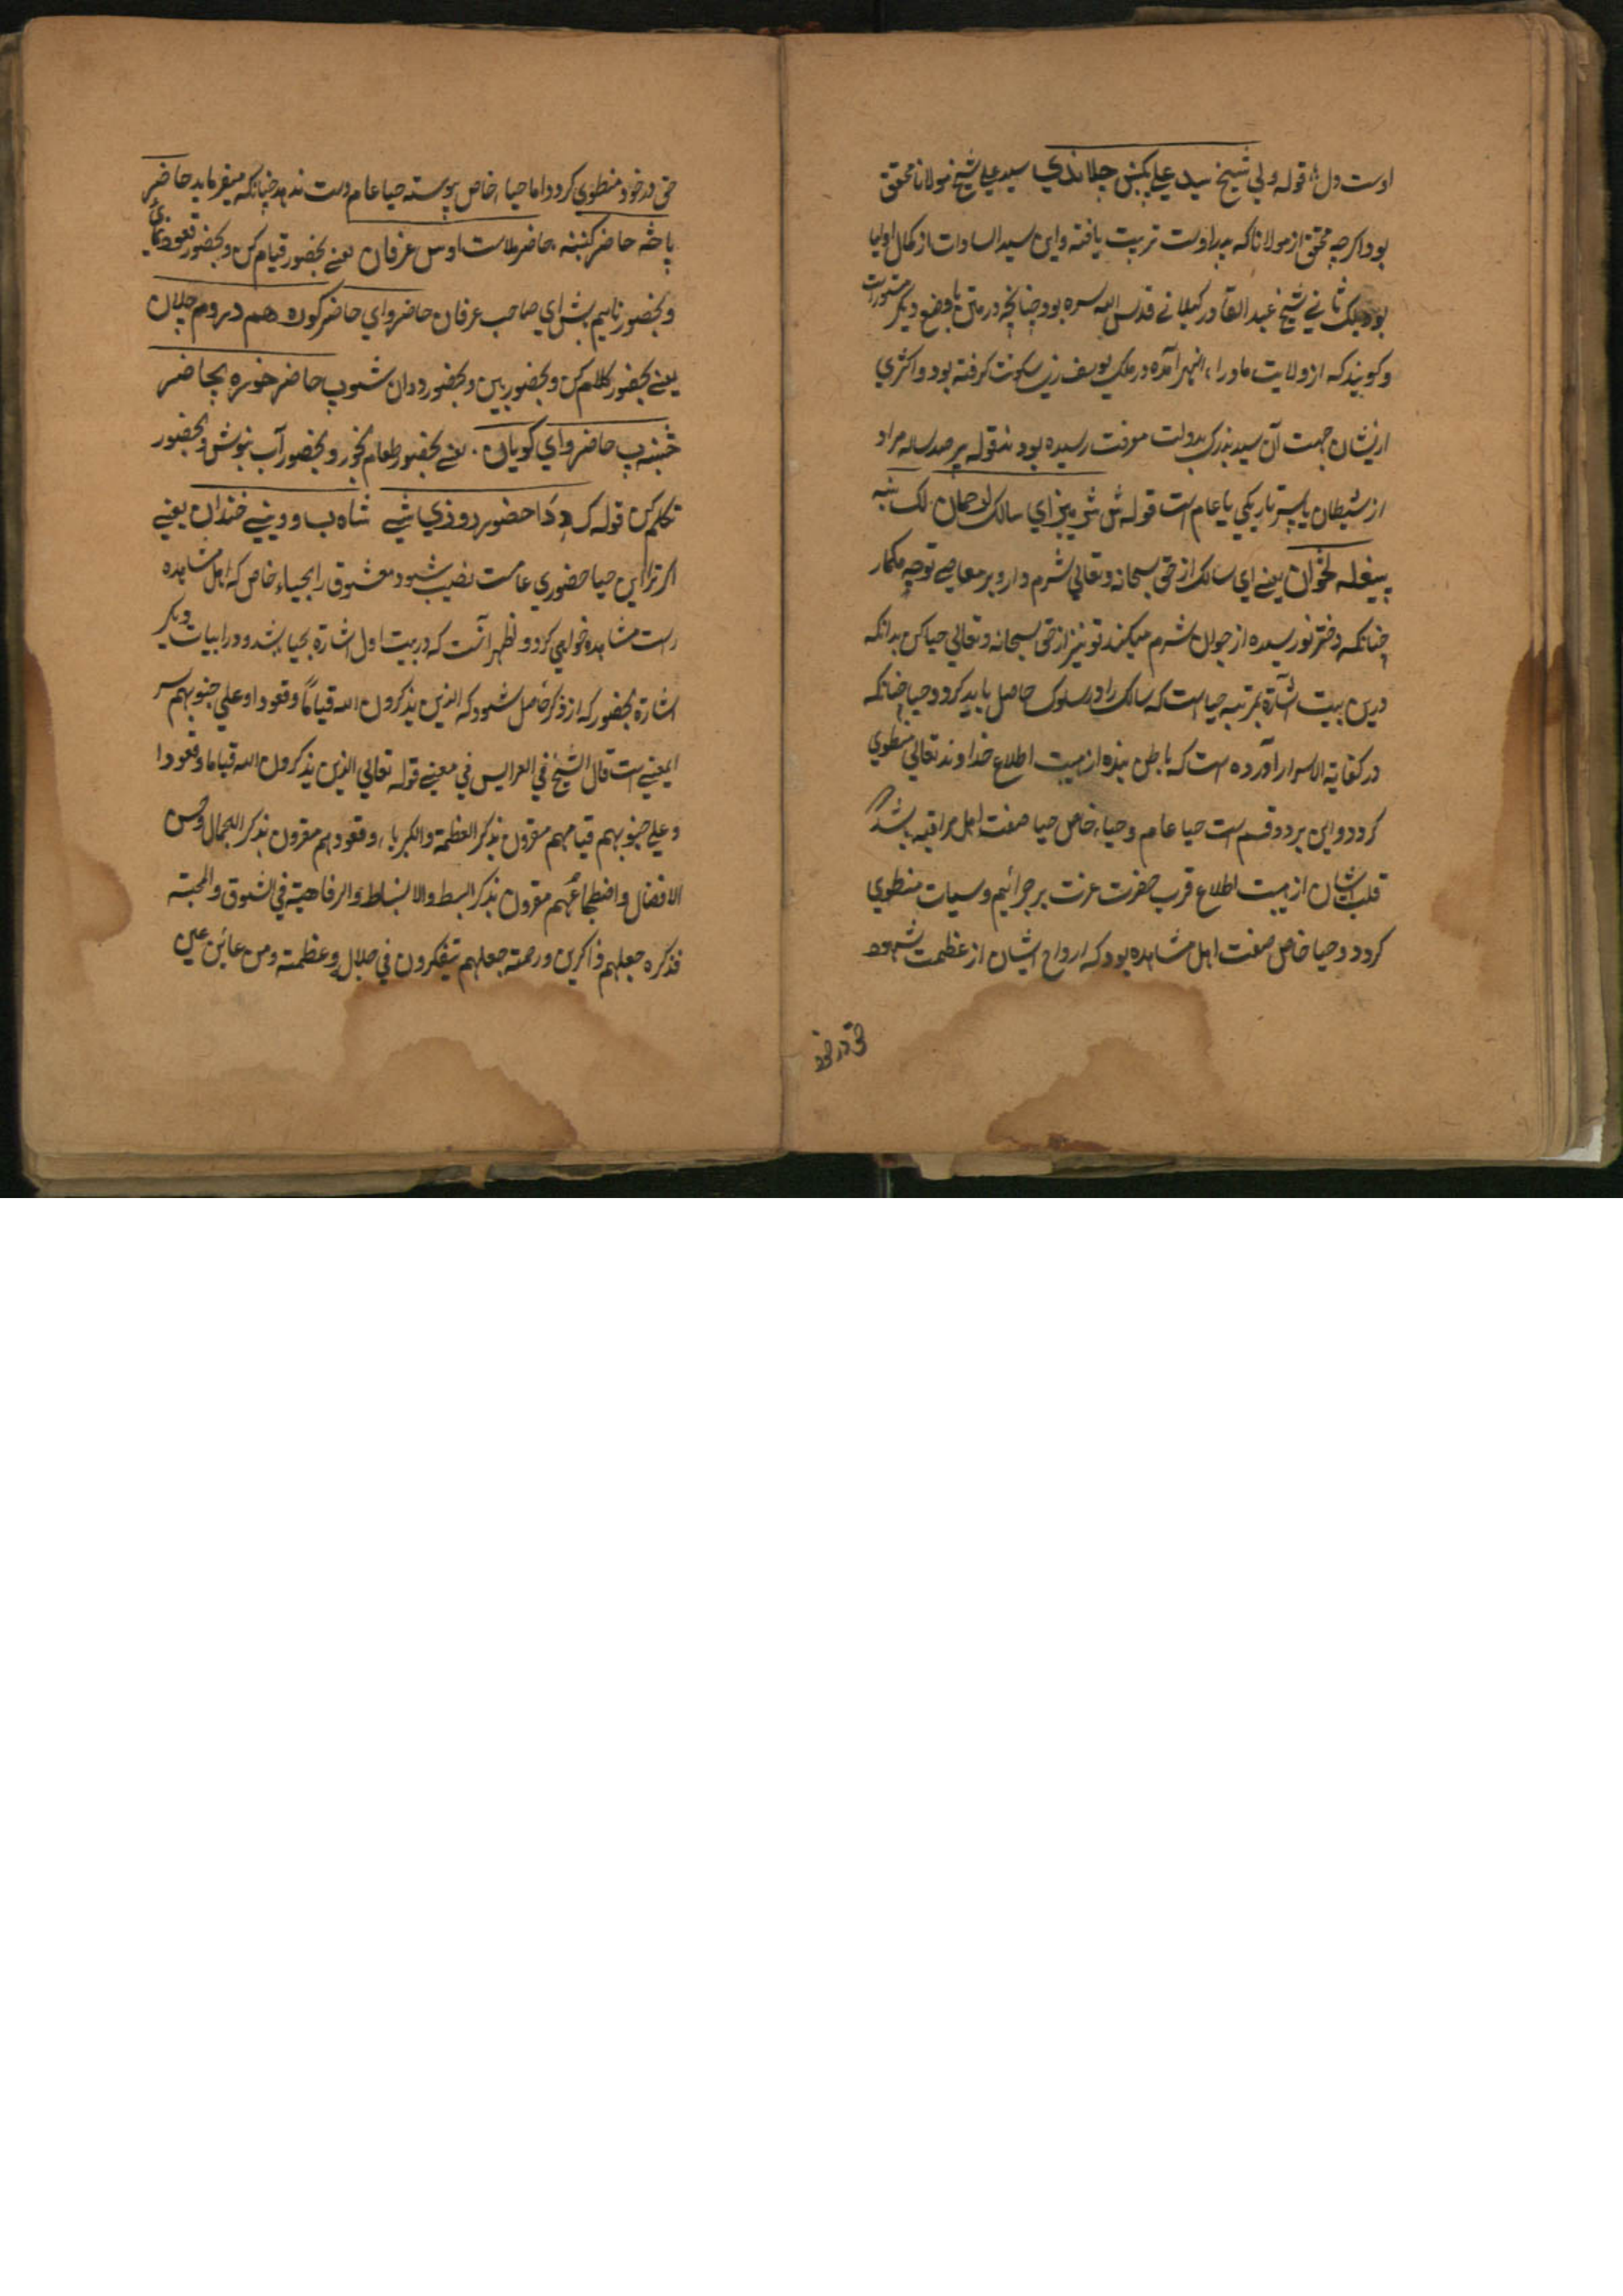 اوست دل قوله ولي شيخ سيد علي چلاندي سيد علي شيخ مولانا محقق
بود اگرچه محقق از مولانا که پدر اوست تربيت يافته و اين سيد السادات از کمال اوليا
بود ثاني شيخ عبد القادر کيلاني قدس الله سره بود چنانچه در متن با وضع ديکر
و کويند که از ولايت ماوراء النهر آمده در ملک يوسف زي سکونت کرفته بود و اکثري
ازيشان جهت آن سيد بزرک بدولت معرفت رسيده بودند قوله مراد
از شيطان تاريکي يا عام است قوله اي سالک
پيغله يعني اي سالک از حق سبحانه و تعالي شرم دار و بر معاصي توجه مکمار
چنانکه دختر نو رسيده از جوان شرم ميکند تو نيز از حق سبحانه و تعالي حيا کن بدانکه
درين بيت اشارة بمرتبه حيا است که سالک را در سلوک حاصل بايد کرد و حيا چنانکه
در کفاية الاسرار آورده است که باطن بنده از هيبت اطلاع خداوند تعالي منطوي
کردد و اين بر دو قسم است حيا عام و حياء خاص حيا صفت اهل مراقبه باشد که
قلب ايشان از هيبت اطلاع قرب حضرت عزت بر جرائيم و سيات منطوي
کردد و حيا خاص صفت اهل مشاهده بود که ارواح ايشان از عظمت شهود
حق در خود
حق در خود منطوي کردد اما حياء خاص پيوسته حيا عام دست ندهد چنانکه ميفرمايد حاضر
پاڅه حاضر کښنه حاضر ملاست اوس عرفان يعني بحضور قيام کن و بحضور قعود نماي
و بحضور نايم باش اي صاحب عرفان حاضر واي حاضر کوره هم دروم چلان
يعني بحضور کلام کن و بحضور ببين و بحضور دوان شو پ حاضر خوره پ حاضر
څښنه پ حاضر واي کويان يعني بحضور طعام بخور و بحضور آب بنوش و بحضور
تکلم کن قوله ک دا حضور د روزي شي شاه ب وويني خندان يعني
اکر ترا اين حيا حضوري عامست نصيب شود معشوق را بحياء خاص که اهل مشاهده
راست مشاهده خواهي کرد و اظهر آنست که در بيت اول اشارة بحيا باشد و در ابيات ديکر
اشارة بحضور که از ذکر حاصل شود که الذين يذکرون الله قياما و قعودا و علي جنوبهم سر
المعني است قال الشيخ في العرايس في معني قوله تعالي الذين يذکرون الله قياما و قعودا
و علي جنوبهم قيامهم مقرون بذکر العظمة و الکبرياء و قعودهم مقرون بذکر الجمال و حسن
الافضال و اضطجاعهم مقرون بذکر البسط و الانبساط و الرفاهية في الشوق و المحبة
فذکره جعلهم ذاکرين و رحمته جعلهم يتفکرون في جلال و عظمته و من عاين عين